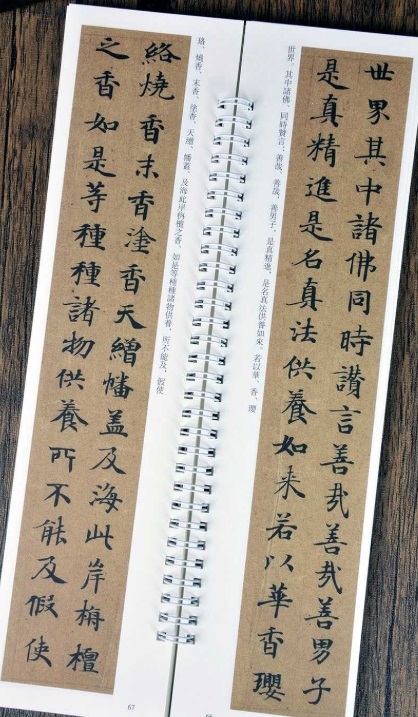 世界其中諸佛同時讚言善哉善哉善男子
是真精進是名真法供養如来若以華香瓔
世界，其中諸佛，同時讚言：善哉，善哉，善男子，是真精進，是名真法供養如來。若以華、香、瓔
絡燒香末香塗香天繒幡盖及海此岸栴檀
之香如是等種種諸物供養所不能及假使
珞、燒香、末香、塗香、天繒、幡蓋，及海此岸栴檀之香，如是等種種諸物供養，所不能及，假使
67